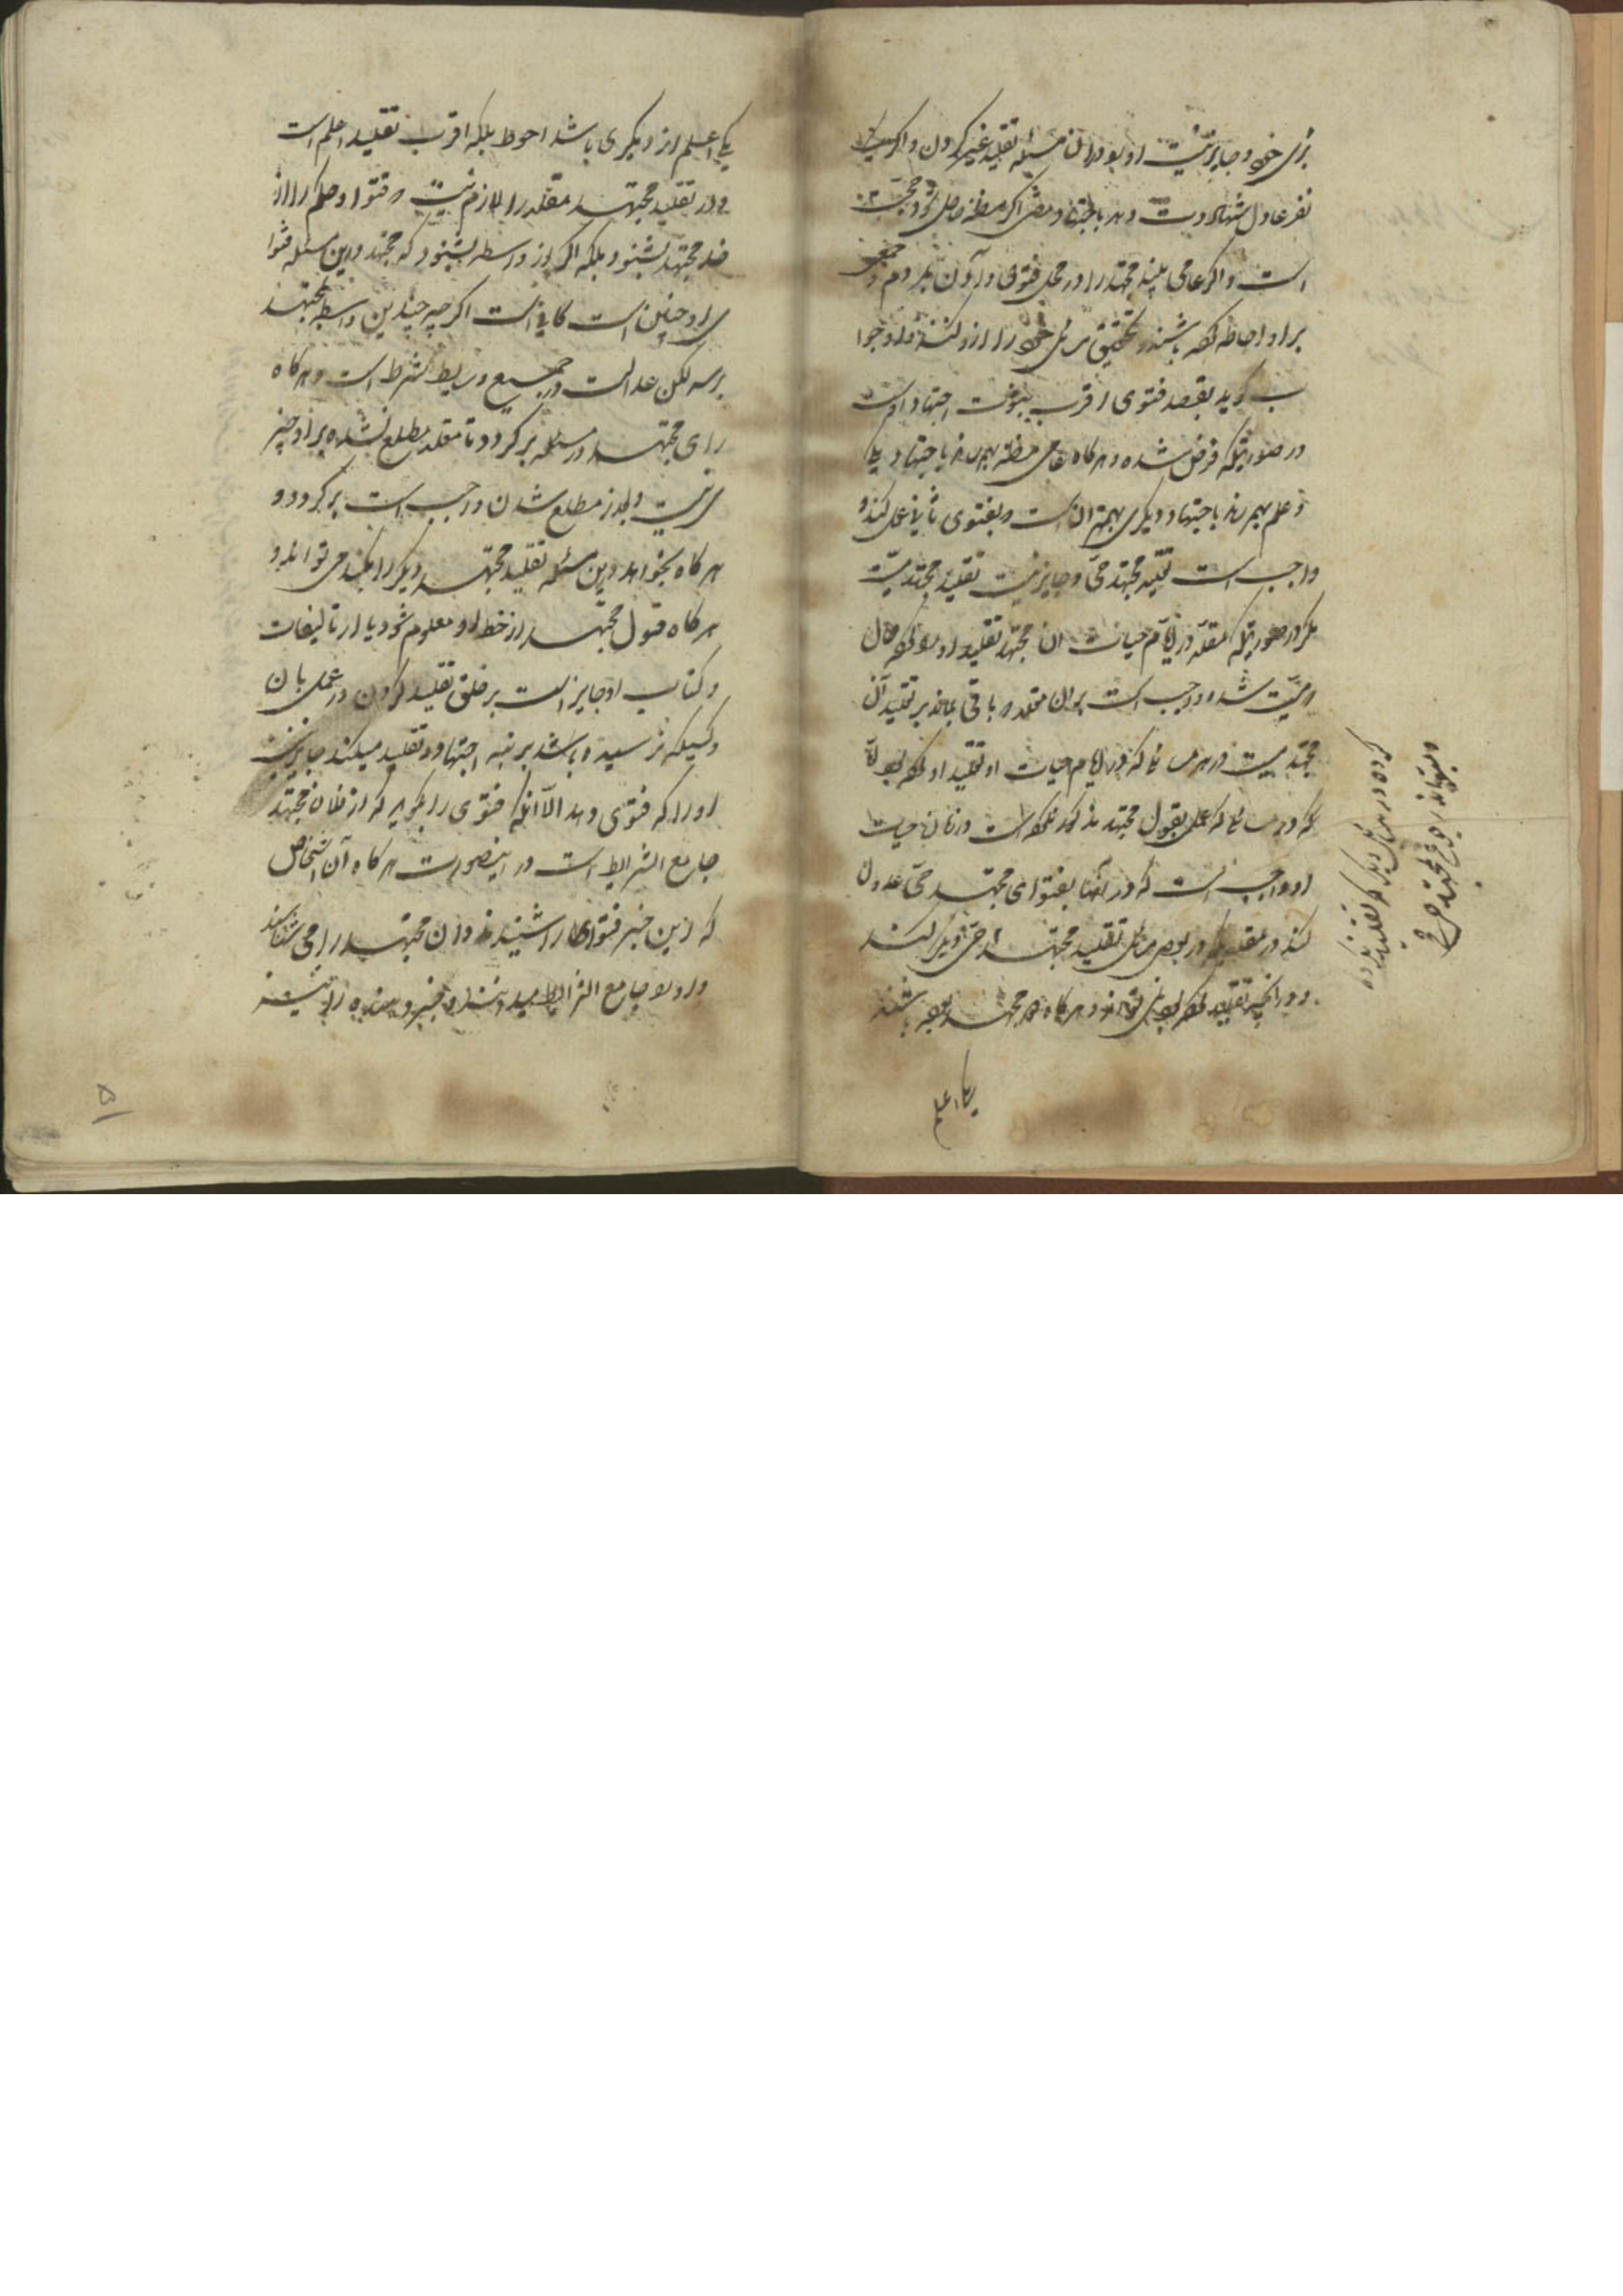 برای خود و جایز نیست او بود در آن مسئله تقلید غیر کردن و اگر
نفر عادل شهادت دهد باجتهاد اگر مظنه حاصل شود حجت
است و اگر عامی بیند مجتهد را در محل فتوی در آوردن مردم و جمعی
بر او احاطه کرده باشند و تحقیق مسائل خود را از او کنند و او جوا
ب گوید بقصد فتوی اقرب ثبوت اجتهاد اوست
در صورتیکه فرض شده و هرگاه عامی مظنه بهم رساند باجتهاد یکی
و علم بهم رساند باجتهاد دیگری بهتر آن است که بفتوی ثانی عمل کند و
واجب است تقلید مجتهد حی و جایز نیست تقلید مجتهد میت
مگر در صورتیکه مقلد در ایام حیات آن مجتهد تقلید او کرده حال
که میت شده واجب است بر آن مقلد که باقی بماند بر تقلید آن
مجتهد میت در هر مسائلی که در ایام حیات او تقلید او کرده بود
که در مسائلی که عمل بقول مجتهد مذکور نکرده است در زمان حیات
او واجب است که در آنها بفتوای مجتهد حی عدول
کند و مقلد در بعض مسائل تقلید مجتهد حی دیگر کند
و در آنچه تقلید کرده و هرگاه مجتهد بوده باشند
یکی اعلم
کرده در مسائل دیگر که تقلید نکرده
میتواند رجوع بمجتهد حی
یکی اعلم از دیگری باشد احوط بلکه اقرب تقلید اعلم است
و در تقلید مجتهد مقلد را لازم نیست که فتوا و حکم را از
خود مجتهد بشنود بلکه اگر از واسطه بشنود که مجتهد در این مسئله فتوا
ی او چنین است کافی است اگر چه چندین واسطه بمجتهد
برسد لکن عدالت در جمیع وسایط شرط است و هرگاه
رای مجتهد در مسئله برگردد تا مقلد مطلع نشده بر او چیز
ی نیست و بعد از مطلع شدن واجب است برگردد و
هرگاه بخواهد در این مسئله تقلید مجتهد دیگر را بکند می تواند و
هرگاه قول مجتهد از خط او معلوم شود یا از تالیفات
و کتاب او جایز است بر خلق تقلید کردن و عمل بآن
و کسیکه نرسیده باشد برتبه اجتهاد و تقلید میکند جایز نیست
او را که فتوی دهد الا آنکه فتوی را بگوید که از فلان مجتهد
جامع الشرایط است در اینصورت هرگاه آن اشخاص
که از این خبر فتواها را شنیدند و آن مجتهد را می شناسند
و او را جامع الشرایط میدانند و خبر دهنده را
۵